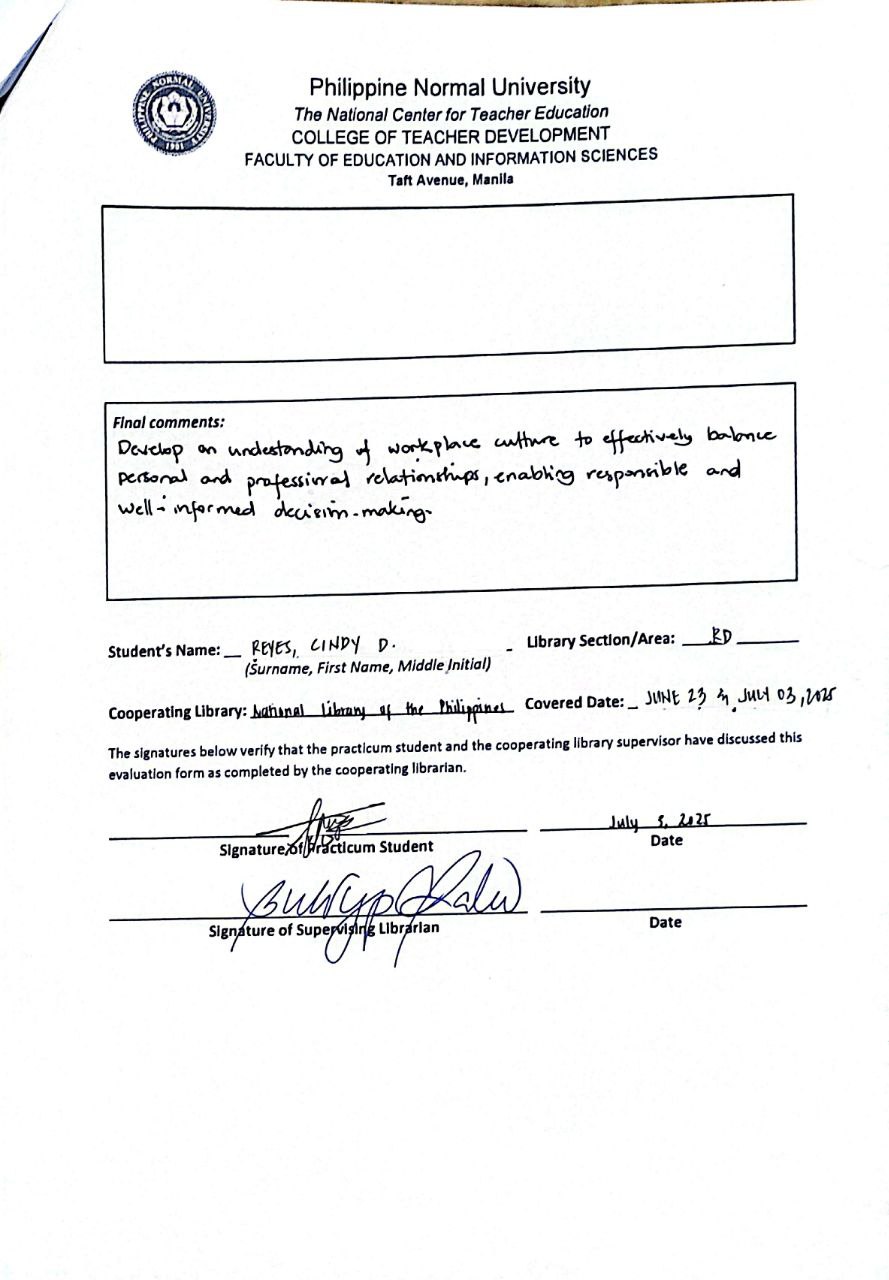 Philippine Normal University
The National Center for Teacher Education
COLLEGE OF TEACHER DEVELOPMENT
FACULTY OF EDUCATION AND INFORMATION SCIENCES
Taft Avenue, Manila
PHILIPPINE NORMAL UNIVERSITY
1901
Final comments:
Develop an undestanding of workplace culture to effectively balance
personal and professional relationships, enabling responsible and
well-informed decision-making.
Student's Name: REYES, CINDY D. Library Section/Area: RD
(Surname, First Name, Middle Initial)
Cooperating Library: National Library of the Philippines Covered Date: JUNE 23 JULY 03, 2025
The signatures below verify that the practicum student and the cooperating library supervisor have discussed this
evaluation form as completed by the cooperating librarian.
July 3, 2025
Signature of Practicum Student Date
Signature of Supervising Librarian Date